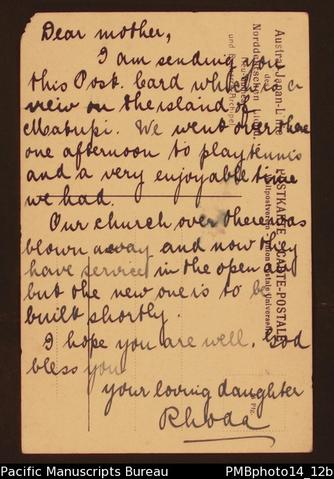 Dear mother,
I am sending you
this Post. Card which is a
view on the island of
Matupi. We went over there
one afternoon to play tennis
and a very enjoyable time
we had.
Our church over there was
blown away and now they
have service in the open air
but the new one is to be
built shortly.
I hope you are well, God
bless you
your loving daughter
Rhoda
Austral-Japan-Linie
des
Norddeutschen Lloyd.
und Bismarck-Archipel
POSTKARTE CARTE-POSTALE
Weltpostverein Union Postale Universelle
Pacific Manuscripts Bureau
PMBphoto14_12b